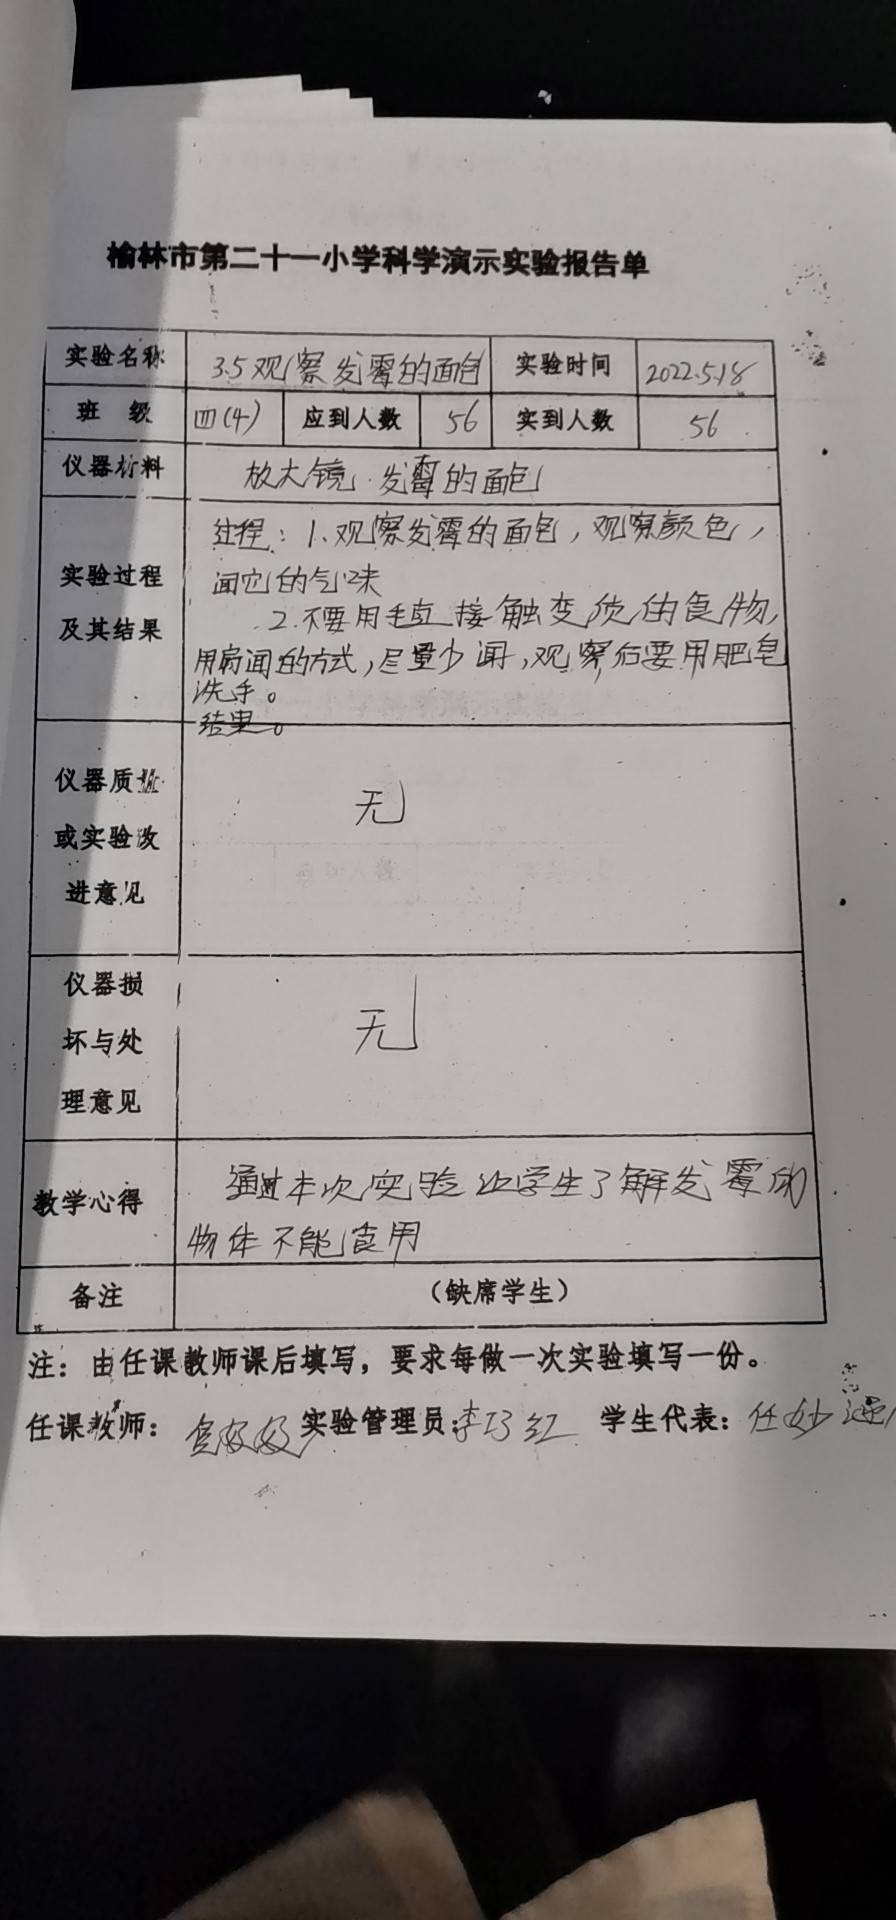 榆林市第二十一小学科学演示实验报告单
实验名称 3.5观察发霉的面包 实验时间 2022.5.18
班 级 四(4) 应到人数 56 实到人数 56
仪器材料 放大镜 发霉的面包
过程：1.观察发霉的面包，观察颜色，
实验过程 闻它的气味
及其结果 2.不要用手直接触变质的食物，
用扇闻的方式，尽量少闻，观察后要用肥皂
洗手。
结果。
仪器质量
或实验改 无
进意见
仪器损
坏与处 无
理意见
教学心得 通过本次实验让学生了解发霉的
物体不能食用
备注 （缺席学生）
注：由任课教师课后填写，要求每做一次实验填写一份。
任课教师： 实验管理员：李巧红 学生代表：任妙